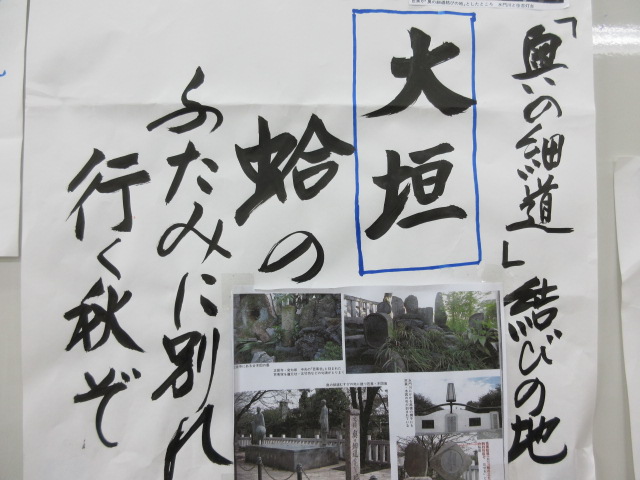 「奥の細道」結びの地
大垣
蛤の
ふたみに別れ
行く秋ぞ